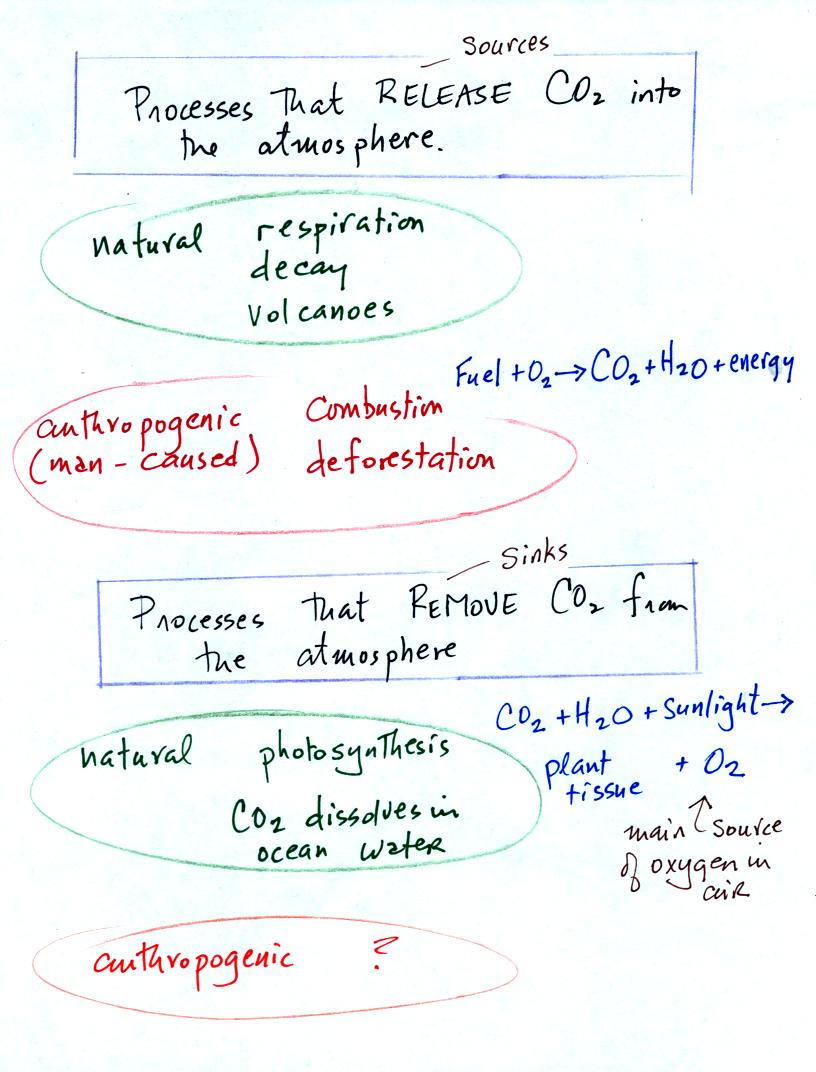 Sources
Processes that RELEASE CO₂ into
the atmosphere.
natural respiration
decay
volcanoes
Fuel + O₂ → CO₂ + H₂O + energy
anthropogenic Combustion
(man-caused) deforestation
Sinks
Processes that REMOVE CO₂ from
the atmosphere
CO₂ + H₂O + Sunlight →
plant + O₂
tissue
natural photosynthesis
CO₂ dissolves in
ocean water
main source
of oxygen in
air
anthropogenic ?